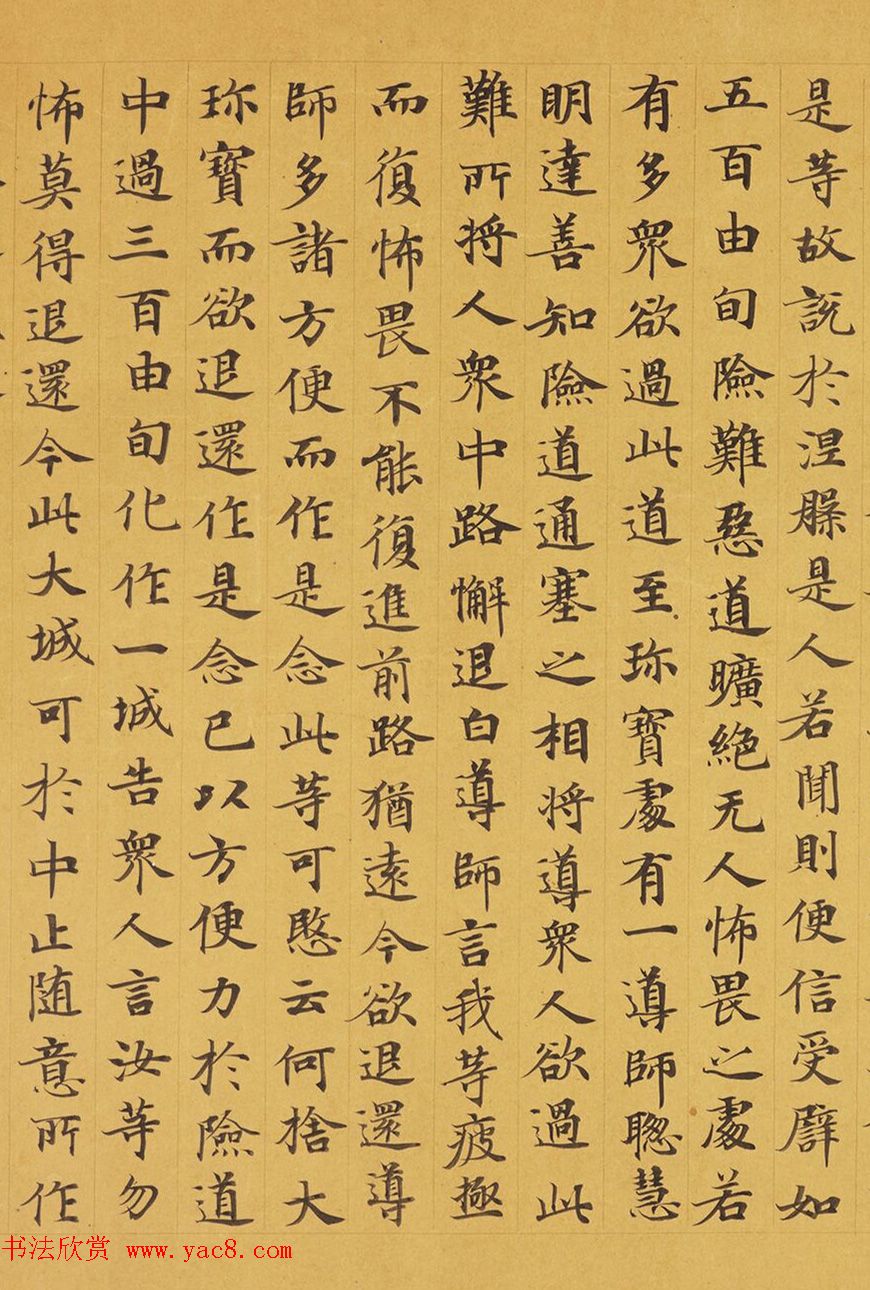 是等故説於涅槃是人若聞則便信受譬如
五百由旬險難惡道曠絶无人怖畏之處若
有多衆欲過此道至珎寶處有一導師聦慧
明達善知險道通塞之相将導衆人欲過此
難所将人衆中路懈退白導師言我等疲極
而復怖畏不能復進前路猶遠今欲退還導
師多諸方便而作是念此等可愍云何捨大
珎寶而欲退還作是念已以方便力於險道
中過三百由旬化作一城告衆人言汝等勿
怖莫得退還今此大城可於中止随意所作
书法欣赏 www.yac8.com